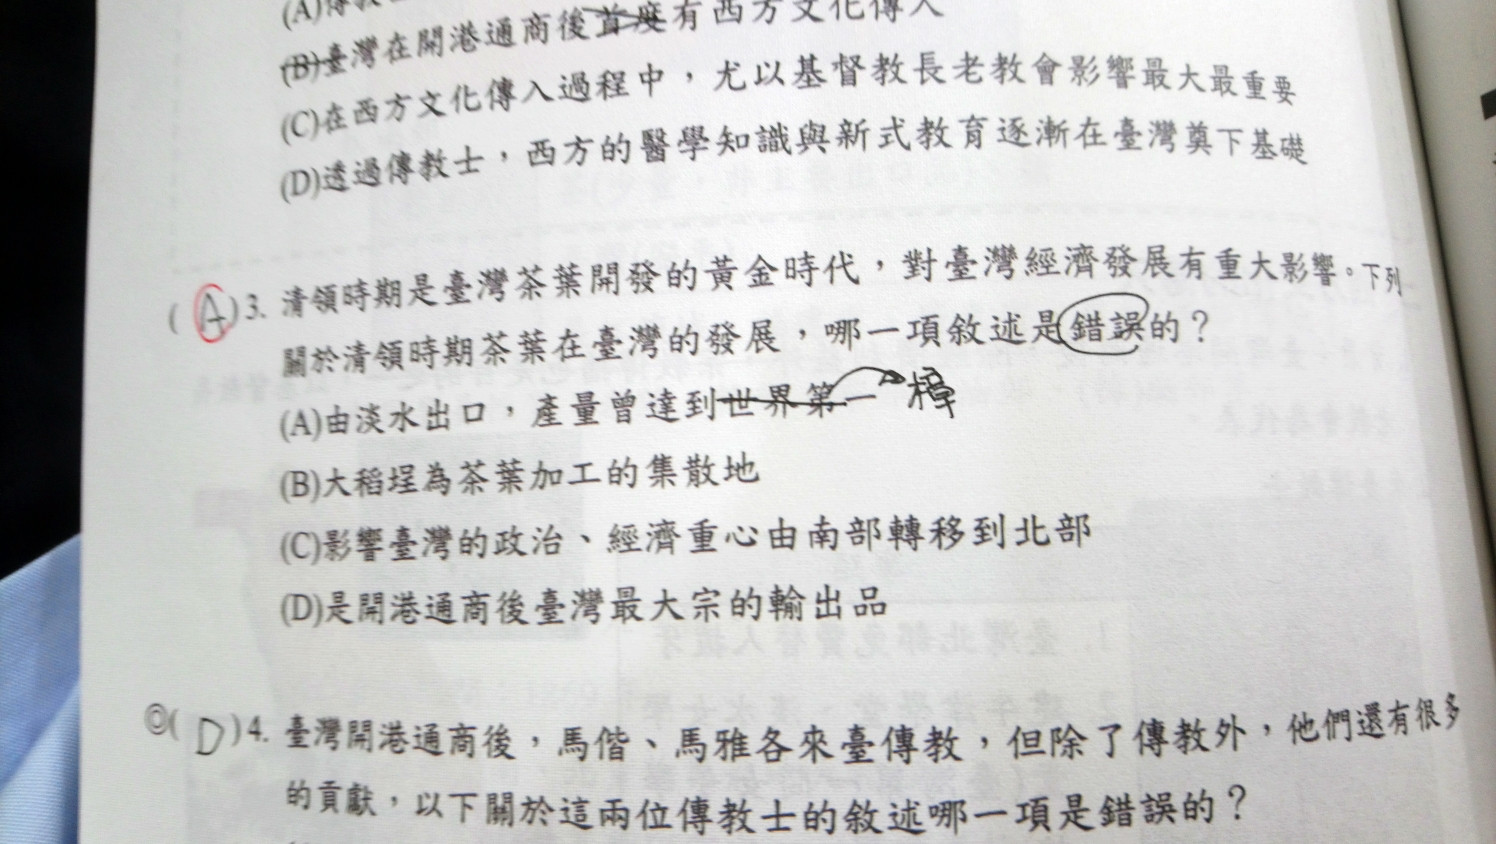 (A)傳教
(B)臺灣在開港通商後首度有西方文化傳入
(C)在西方文化傳入過程中，尤以基督教長老教會影響最大最重要
(D)透過傳教士，西方的醫學知識與新式教育逐漸在臺灣奠下基礎
(A)3. 清領時期是臺灣茶葉開發的黃金時代，對臺灣經濟發展有重大影響。下列
關於清領時期茶葉在臺灣的發展，哪一項敘述是錯誤的？
(A)由淡水出口，產量曾達到世界第一 樟
(B)大稻埕為茶葉加工的集散地
(C)影響臺灣的政治、經濟重心由南部轉移到北部
(D)是開港通商後臺灣最大宗的輸出品
◎(D)4. 臺灣開港通商後，馬偕、馬雅各來臺傳教，但除了傳教外，他們還有很多
的貢獻，以下關於這兩位傳教士的敘述哪一項是錯誤的？